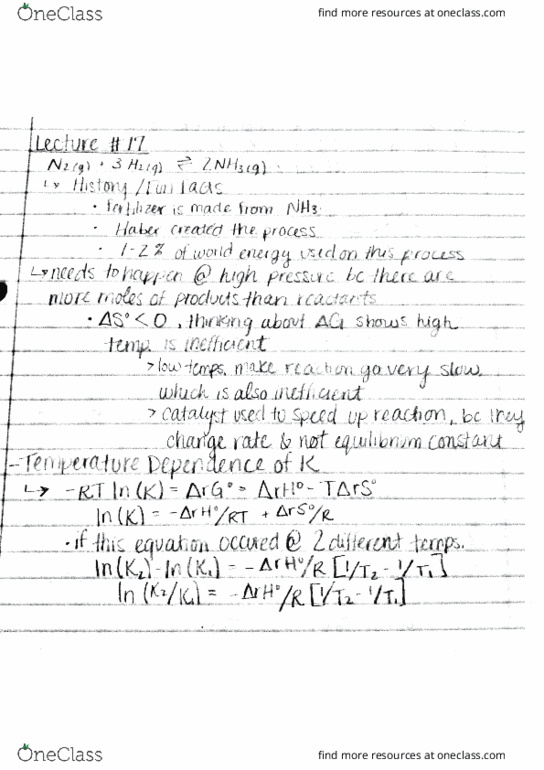 OneClass
find more resources at oneclass.com
Lecture #17
N2(g) + 3H2(g) ⇌ 2NH3(g)
↳ History/Fun facts
• fertilizer is made from NH3
• Haber created the process
• 1-2% of world energy used on this process
↳ needs to happen @ high pressure bc there are
more moles of products than reactants
• ΔS° < 0, thinking about ΔG shows high
temp. is inefficient
> low temps, make reaction go very slow,
which is also inefficient
> catalyst used to speed up reaction, bc they
change rate & not equilibrium constant
- Temperature Dependence of K
↳ -RT ln(K) = ΔrG° = ΔrH° - TΔrS°
ln(K) = -ΔrH°/RT + ΔrS°/R
• if this equation occured @ 2 different temps.
ln(K2) - ln(K1) = -ΔrH°/R [1/T2 - 1/T1]
ln(K2/K1) = -ΔrH°/R [1/T2 - 1/T1]
OneClass
find more resources at oneclass.com